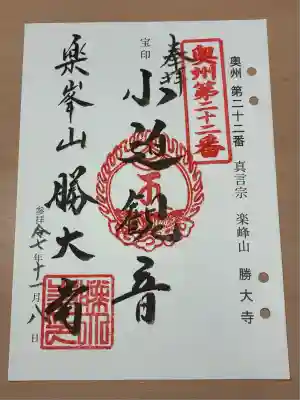 奥州 第二十二番
真言宗 楽峰山 勝大寺
奥州第二十二番
奉拝
宝印
小迫観音
楽峯山 勝大寺
参拝 令七年十一月八日